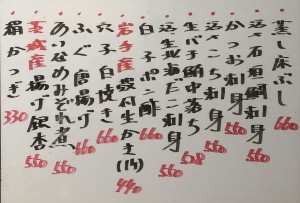 蒸し床ぶし 660
活〆石垣鯛刺身 550
かつお刺身 550
活〆こち刺身 660
生バチ鮪中落ち 528
活生地だこ刺身 550
白子ポン酢 660
岩手産殻付生かき(1ケ) 440
穴子白焼き 660
ふぐ唐揚げ 660
あいなめみぞれ煮 550
茨城産揚げ銀杏 550
絹かつぎ 330